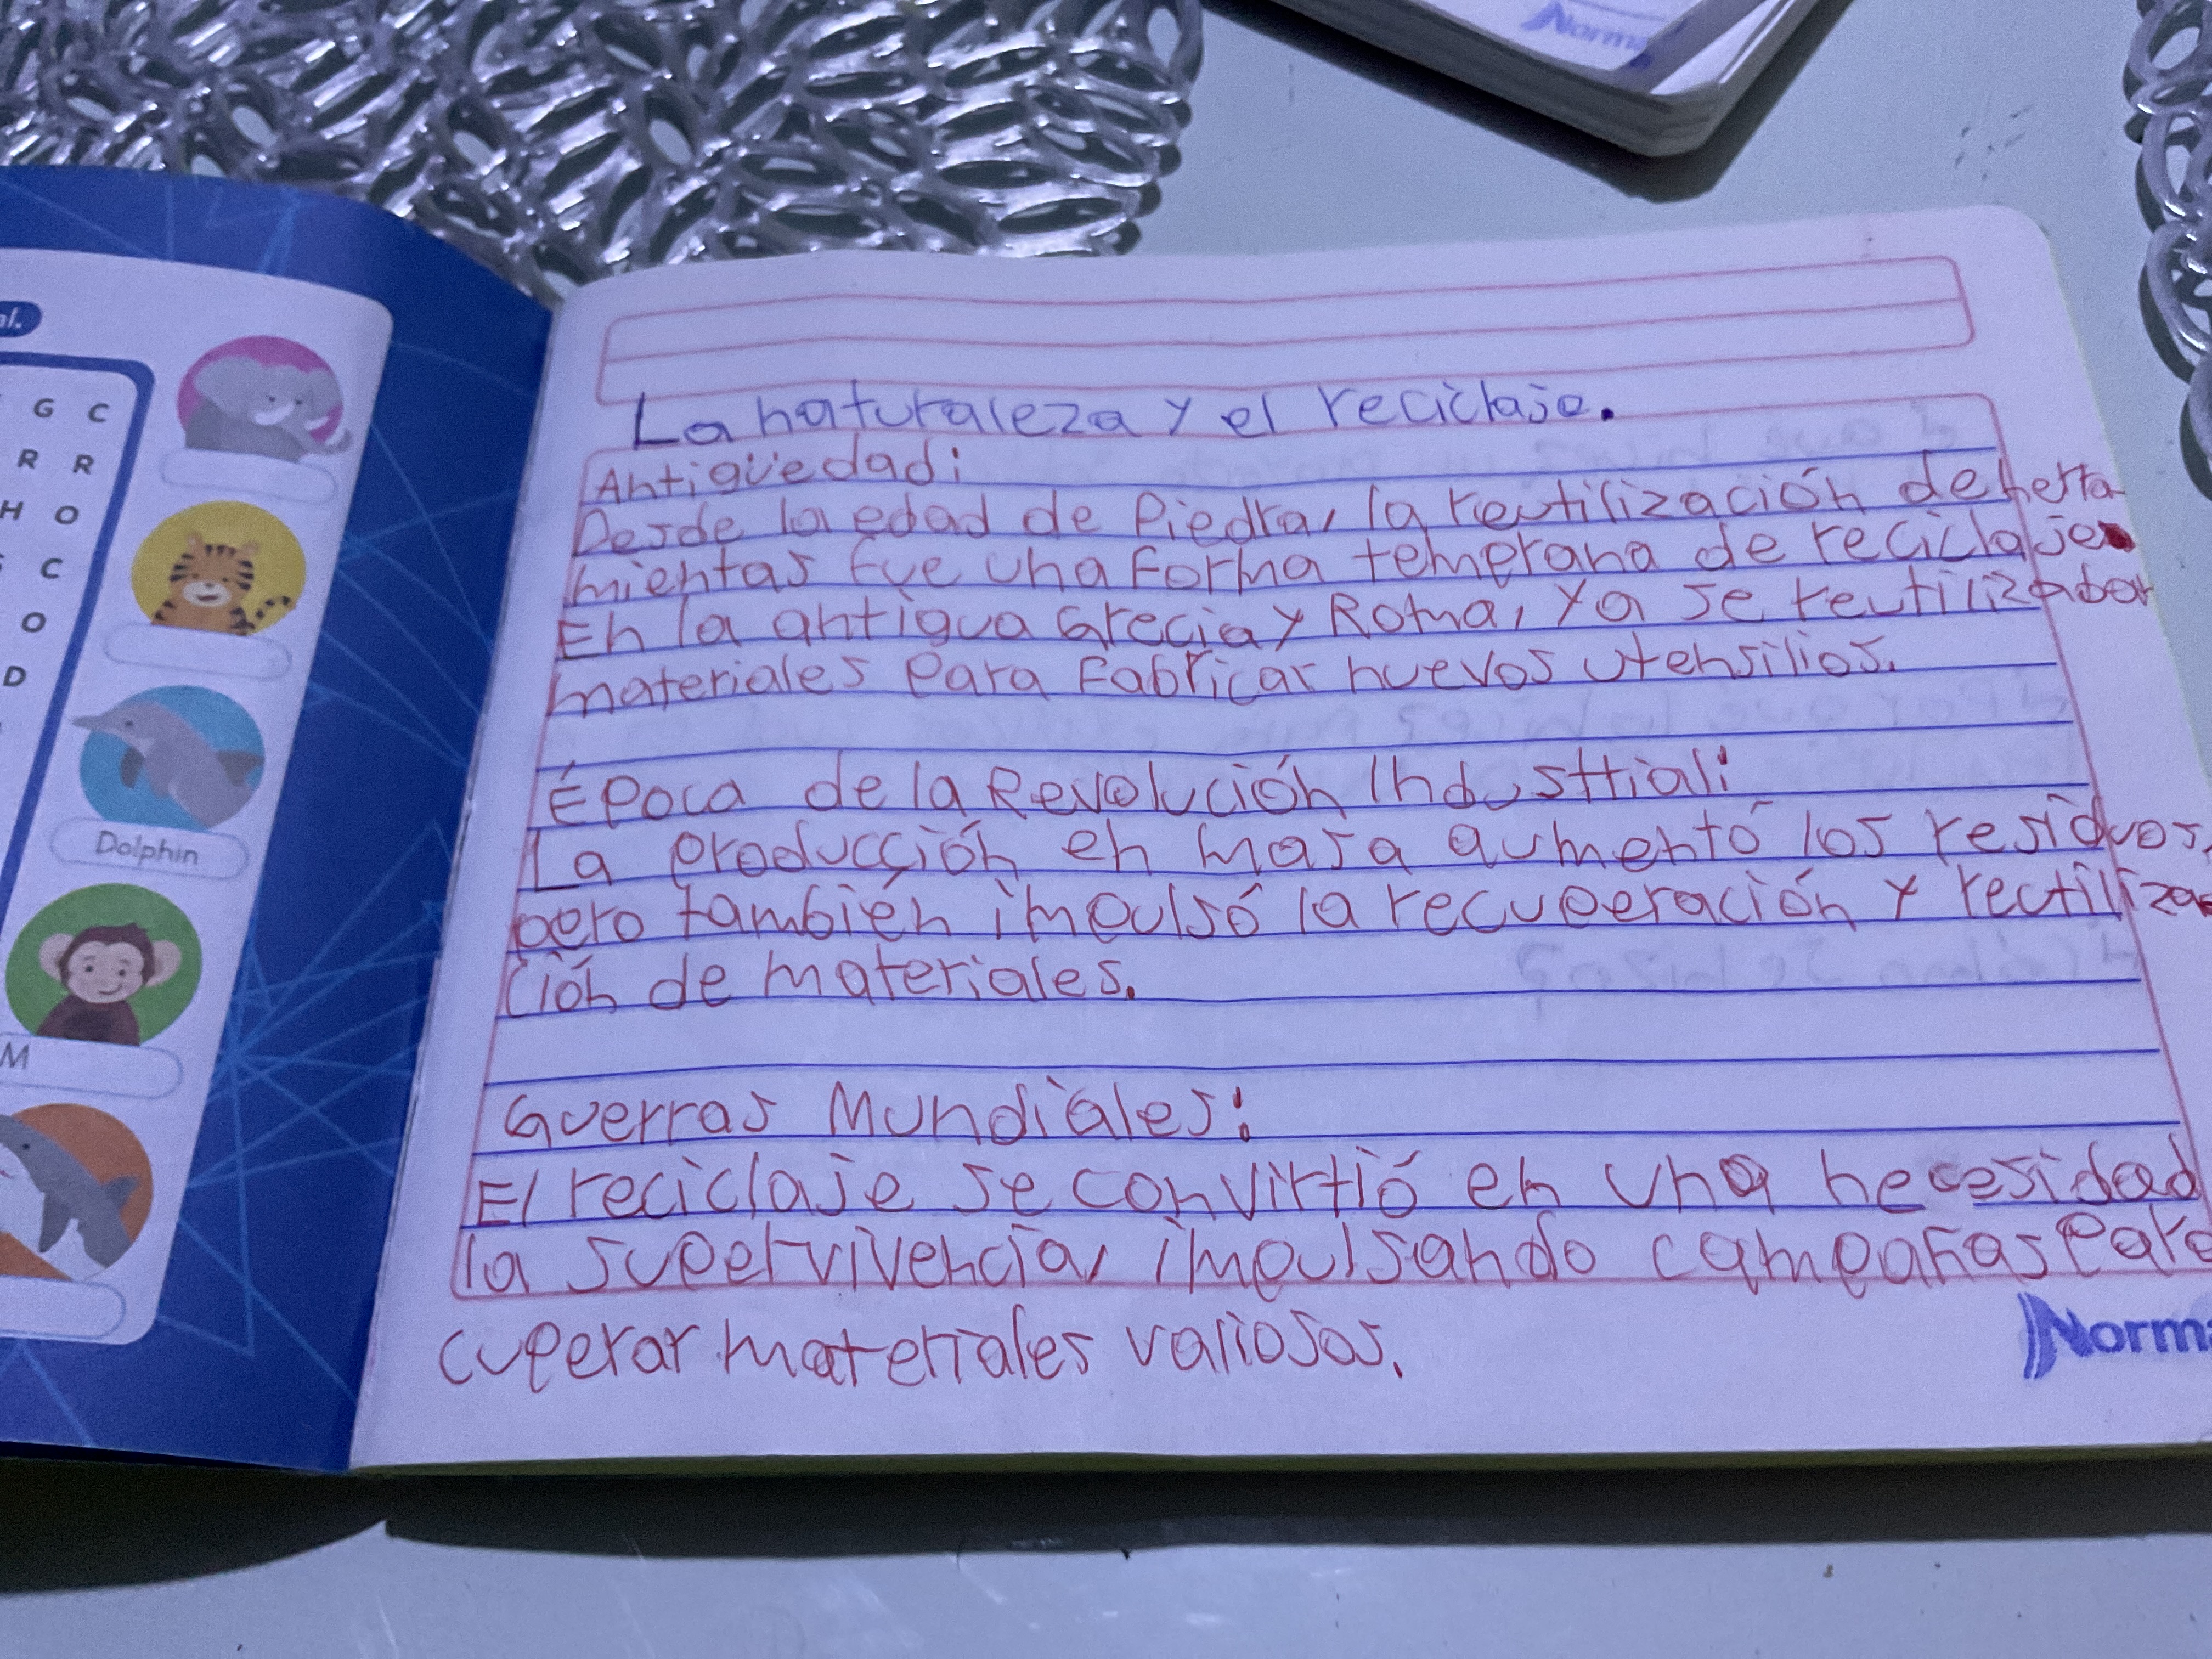 Norma
al.
G C
R R
H O
C
O
D
Dolphin
M
La naturaleza y el reciclaje.
Antigüedad:
Desde la edad de Piedra, la reutilización de herra-
mientas fue una forma temprana de reciclaje.
En la antigua Grecia y Roma, ya se reutilizaban
materiales para fabricar nuevos utensilios.
Época de la Revolución Industrial:
La producción en masa aumentó los residuos,
pero también impulsó la recuperación y reutiliza-
ción de materiales.
Guerras Mundiales:
El reciclaje se convirtió en una necesidad
la supervivencia, impulsando campañas para
cuperar materiales valiosos.
Norma